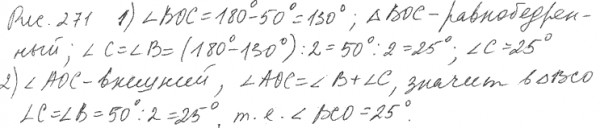 Рис. 271 1) ∠BOC = 180° - 50° = 130°; △BOC - равнобедрен-
ный; ∠C = ∠B = (180° - 130°) : 2 = 50° : 2 = 25°; ∠C = 25°
2) ∠AOC - внешний, ∠AOC = ∠B + ∠C, значит в △BCO
∠C = ∠B = 50° : 2 = 25°, т.е. ∠BCO = 25°.